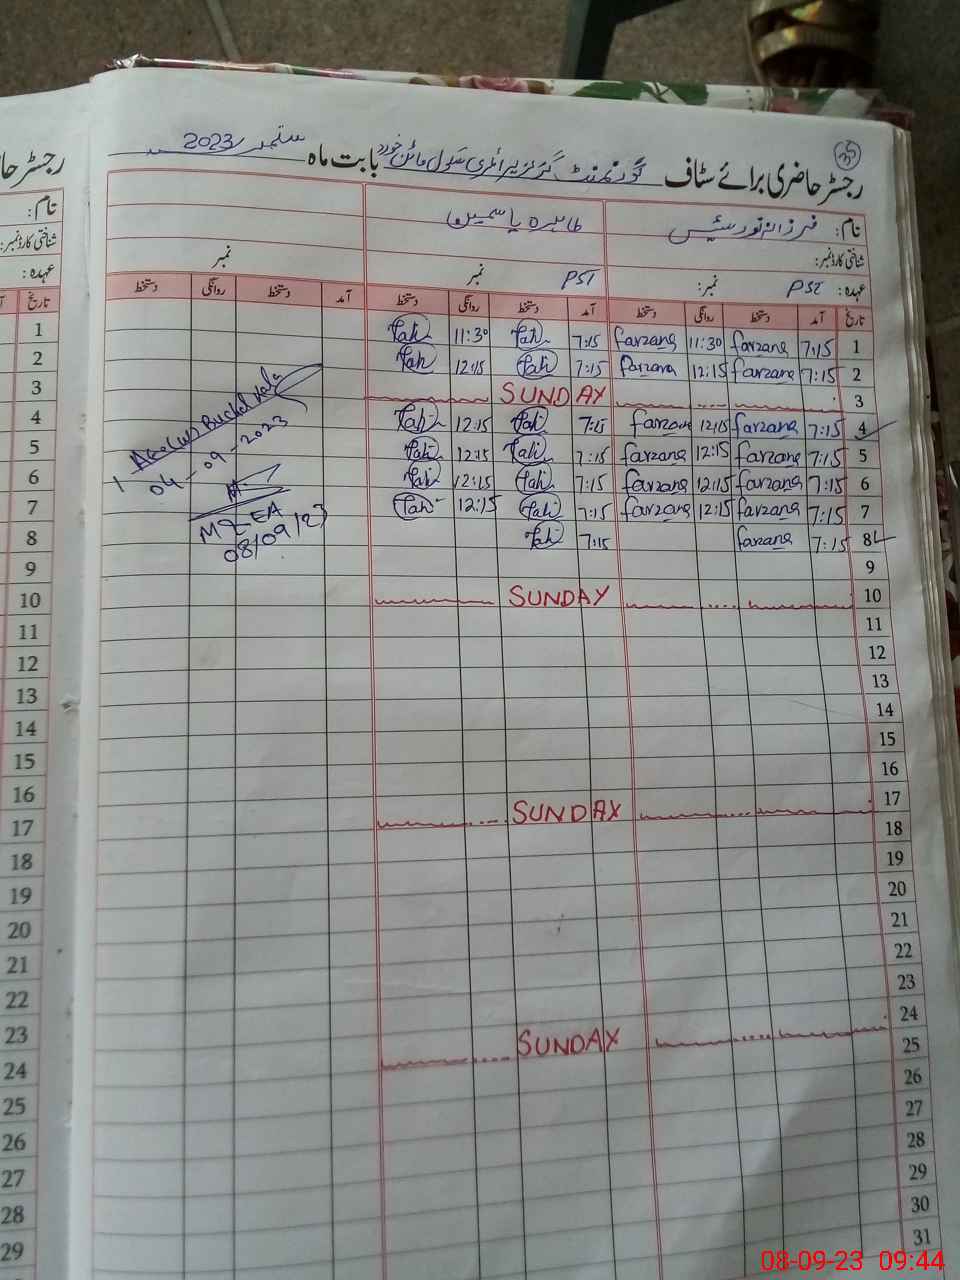 رجسٹر حاضری برائے سٹاف گورنمنٹ گرلز پرائمری سکول بابت ماہ ستمبر 2023
35
نام: فرزانہ طاہرہ یاسمین
شناختی کارڈ نمبر:
عہدہ: PST نمبر: PST نمبر نمبر
تاریخ آمد دستخط روانگی دستخط آمد دستخط روانگی دستخط آمد دستخط روانگی دستخط
1 7:15 farzana 11:30 farzana 7:15 Tah 11:30 Tah
2 7:15 farzana 12:15 farzana 7:15 Tah 12:15 Tah
3 SUNDAY
4 7:15 farzana 12:15 farzana 7:15 Tah 12:15 Tah
5 7:15 farzana 12:15 farzana 7:15 Tah 12:15 Tah
6 7:15 farzana 12:15 farzana 7:15 Tah 12:15 Tah
7 7:15 farzana 12:15 farzana 7:15 Tah 12:15 Tah
8 7:15 farzana 7:15 Tah
9
10 SUNDAY
11
12
13
14
15
16
17 SUNDAY
18
19
20
21
22
23
24 SUNDAY
25
26
27
28
29
30
31
AEO(W) Buchal kala
04-09-2023
MEA
08/09/23
رجسٹر
نام:
شناختی کارڈ نمبر:
عہدہ:
تاریخ
1
2
3
4
5
6
7
8
9
10
11
12
13
14
15
16
17
18
19
20
21
22
23
24
25
26
27
28
29
08-09-23 09:44